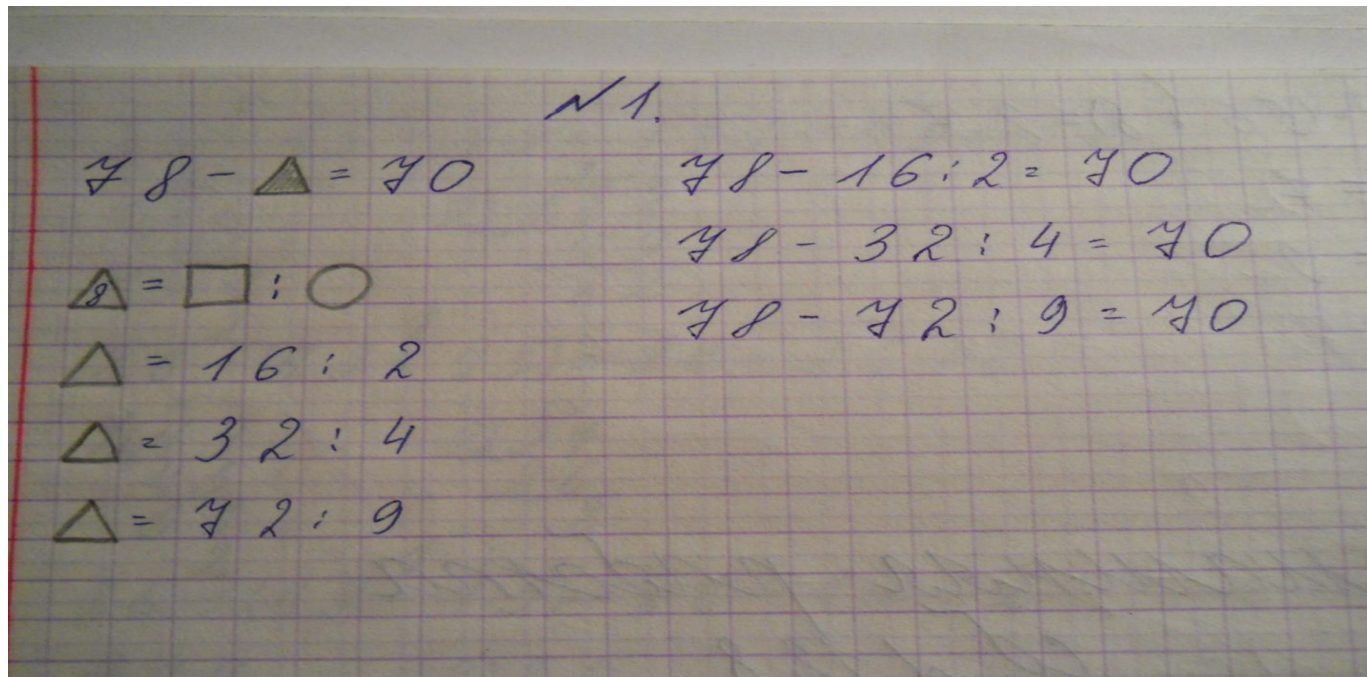 № 1.
78 - ▲ = 70
8 = □ : ○
△ = 16 : 2
△ = 32 : 4
△ = 72 : 9
78 - 16 : 2 = 70
78 - 32 : 4 = 70
78 - 72 : 9 = 70